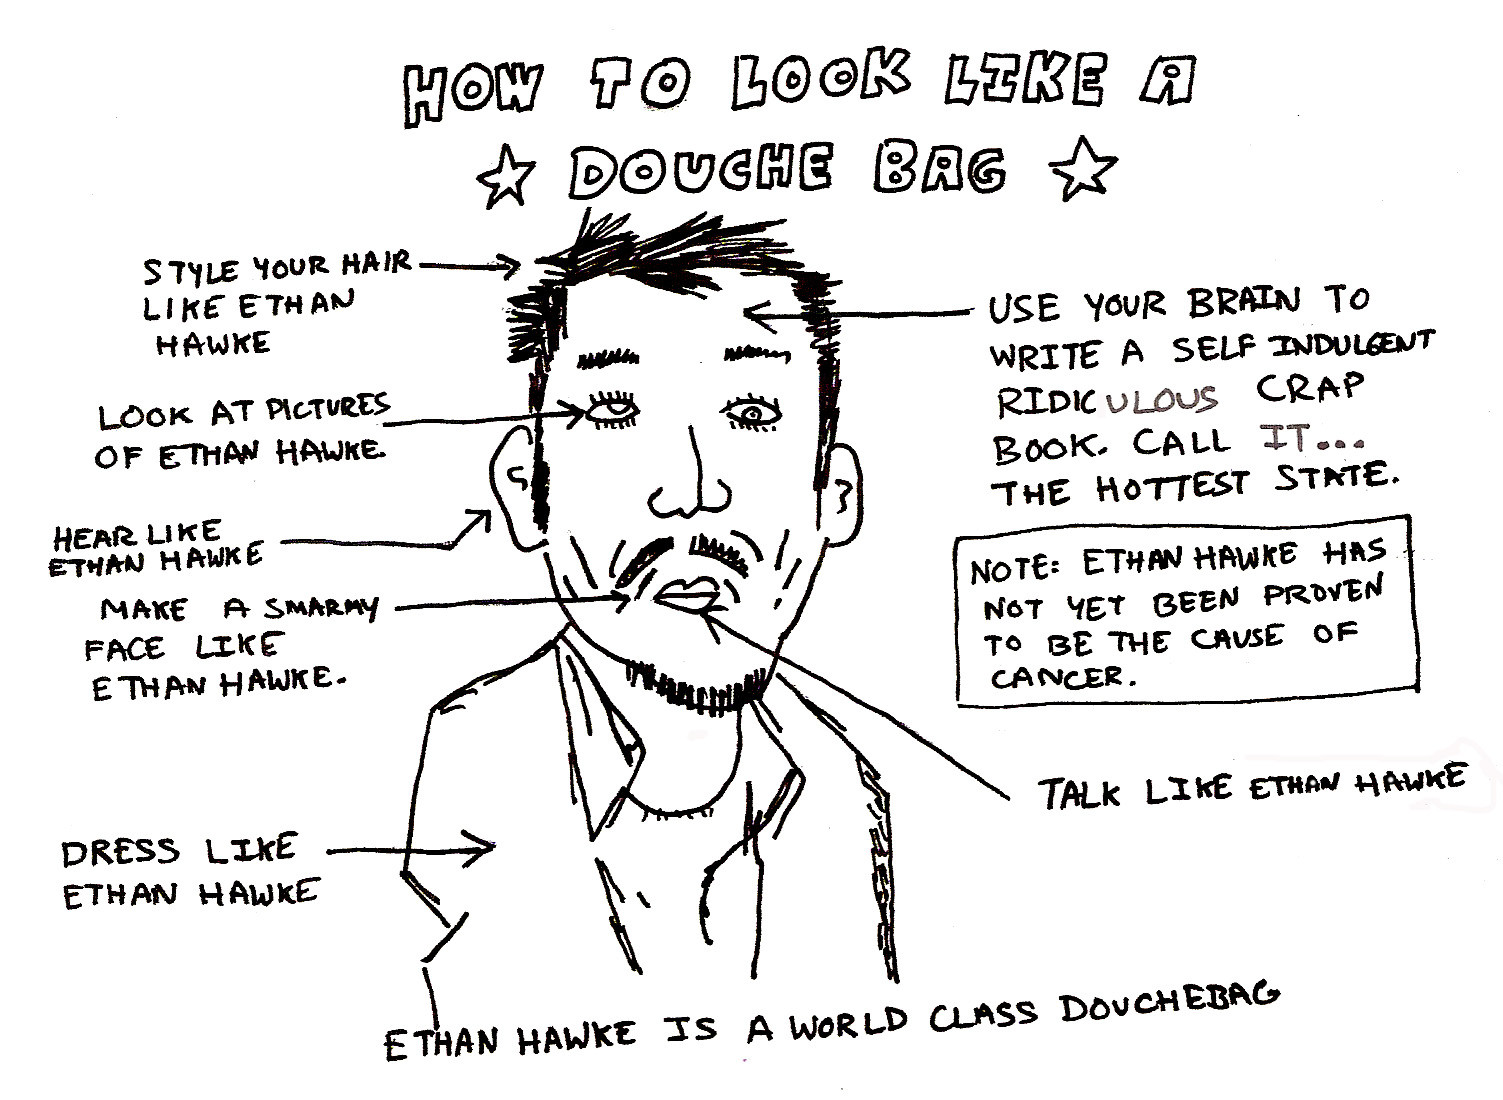 HOW TO LOOK LIKE A
DOUCHE BAG
STYLE YOUR HAIR
LIKE ETHAN
HAWKE
LOOK AT PICTURES
OF ETHAN HAWKE.
HEAR LIKE
ETHAN HAWKE
MAKE A SMARMY
FACE LIKE
ETHAN HAWKE.
DRESS LIKE
ETHAN HAWKE
USE YOUR BRAIN TO
WRITE A SELF INDULGENT
RIDICULOUS CRAP
BOOK. CALL IT...
THE HOTTEST STATE.
NOTE: ETHAN HAWKE HAS
NOT YET BEEN PROVEN
TO BE THE CAUSE OF
CANCER.
TALK LIKE ETHAN HAWKE
ETHAN HAWKE IS A WORLD CLASS DOUCHEBAG